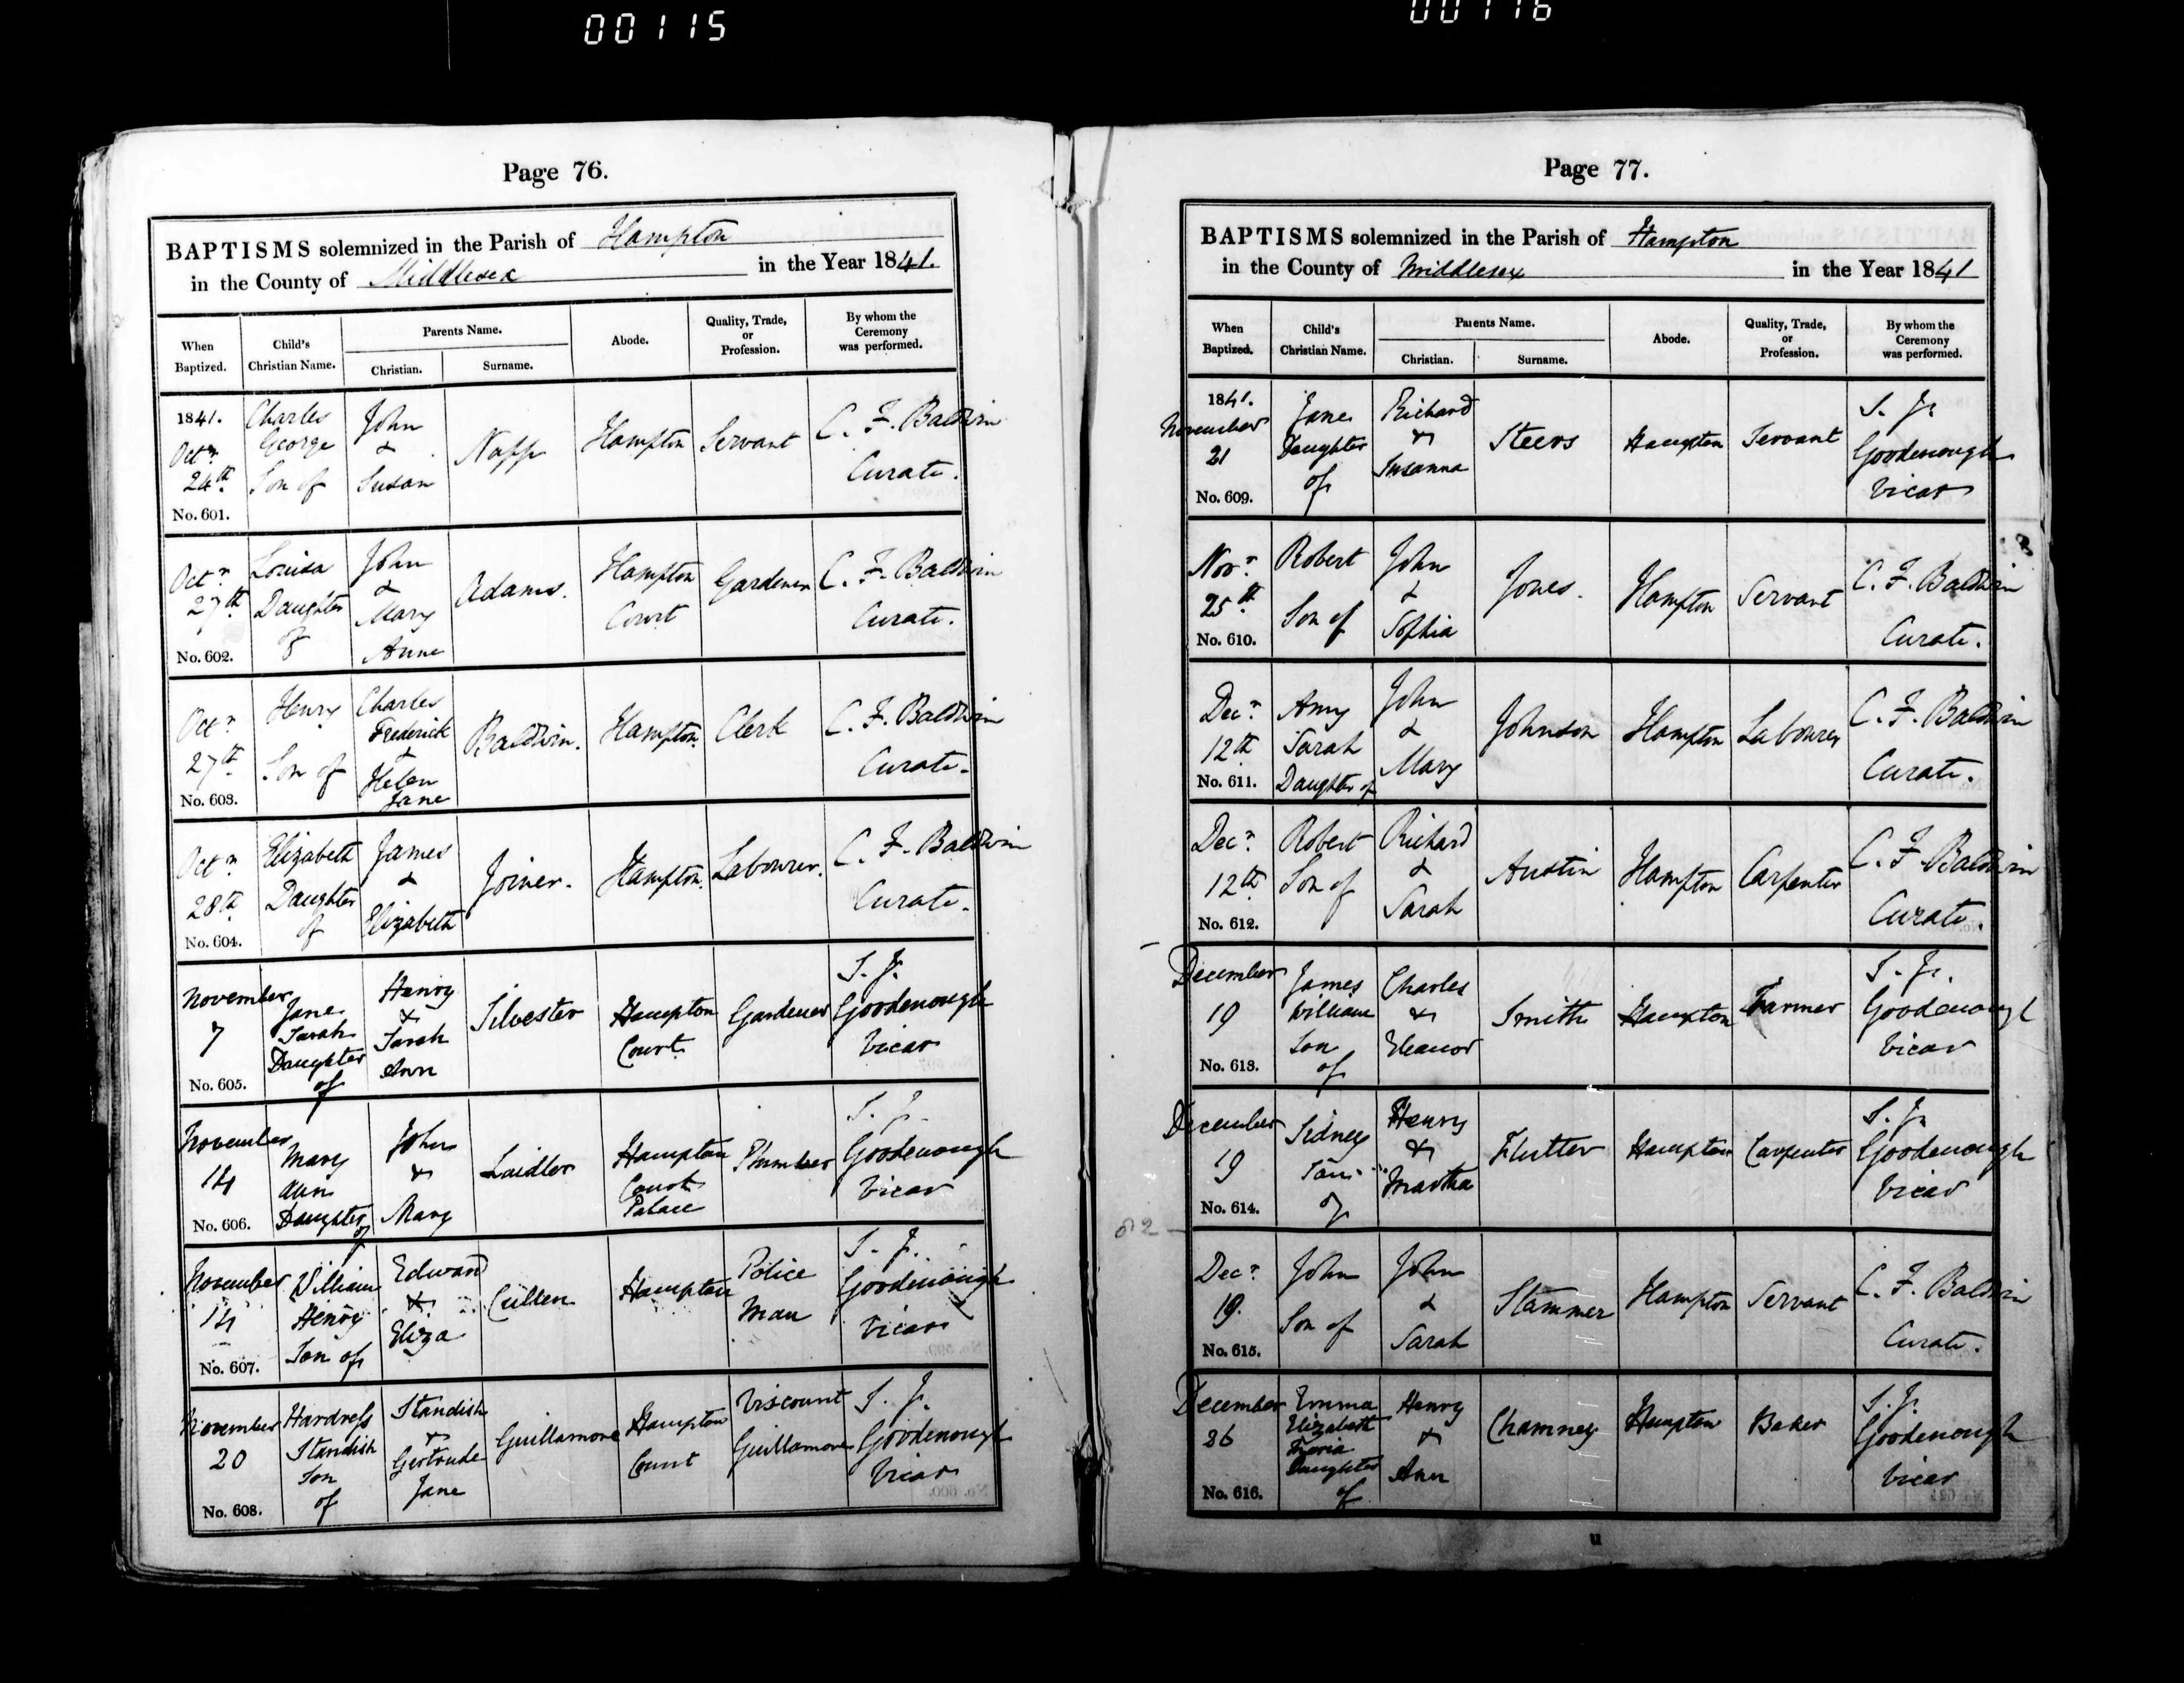 00115
00116
Page 76.
BAPTISMS solemnized in the Parish of Hampton
in the County of Middlesex in the Year 1841.
When Baptized.
Child's Christian Name.
Parents Name.
Christian.
Surname.
Abode.
Quality, Trade, or Profession.
By whom the Ceremony was performed.
1841. Octr 24th No. 601. Charles George Son of John & Susan Napp Hampton Servant C. F. Baldwin Curate.
Octr 27th No. 602. Louisa Daughter of John & Mary Anne Adams. Hampton Court Gardener C. F. Baldwin Curate.
Octr 27th No. 603. Henry Son of Charles Frederick & Helen Jane Baldwin. Hampton. Clerk C. F. Baldwin Curate.
Octr 28th No. 604. Elizabeth Daughter of James & Elizabeth Joiner. Hampton. Labourer. C. F. Baldwin Curate.
November 7 No. 605. Jane Sarah Daughter of Henry & Sarah Ann Silvester Hampton Court Gardener S. J. Goodenough Vicar
November 14 No. 606. Mary Ann Daughter of John & Mary Laidler Hampton Court Palace Plumber S. J. Goodenough Vicar
November 14 No. 607. William Henry Son of Edward & Eliza Cullen Hampton Police Man S. J. Goodenough Vicar
November 20 No. 608. Hardress Standish Son of Standish & Gertrude Jane Guillamore Hampton Court Viscount Guillamore S. J. Goodenough Vicar
Page 77.
BAPTISMS solemnized in the Parish of Hampton
in the County of Middlesex in the Year 1841
When Baptized.
Child's Christian Name.
Parents Name.
Christian.
Surname.
Abode.
Quality, Trade, or Profession.
By whom the Ceremony was performed.
1841. November 21 No. 609. Jane Daughter of Richard & Susanna Steers Hampton Servant S. J. Goodenough Vicar
Novr 25th No. 610. Robert Son of John & Sophia Jones. Hampton Servant C. F. Baldwin Curate.
Decr 12th No. 611. Amy Sarah Daughter of John & Mary Johnson Hampton Labourer C. F. Baldwin Curate.
Decr 12th No. 612. Robert Son of Richard & Sarah Austin Hampton Carpenter C. F. Baldwin Curate.
December 19 No. 613. James William Son of Charles & Eleanor Smith Hampton Farmer S. J. Goodenough Vicar
December 19 No. 614. Sidney Son of Henry & Martha Flutter Hampton Carpenter S. J. Goodenough Vicar
Decr 19. No. 615. John Son of John & Sarah Stammer Hampton Servant C. F. Baldwin Curate.
December 26 No. 616. Emma Elizabeth Maria Daughter of Henry & Ann Chamney Hampton Baker S. J. Goodenough Vicar